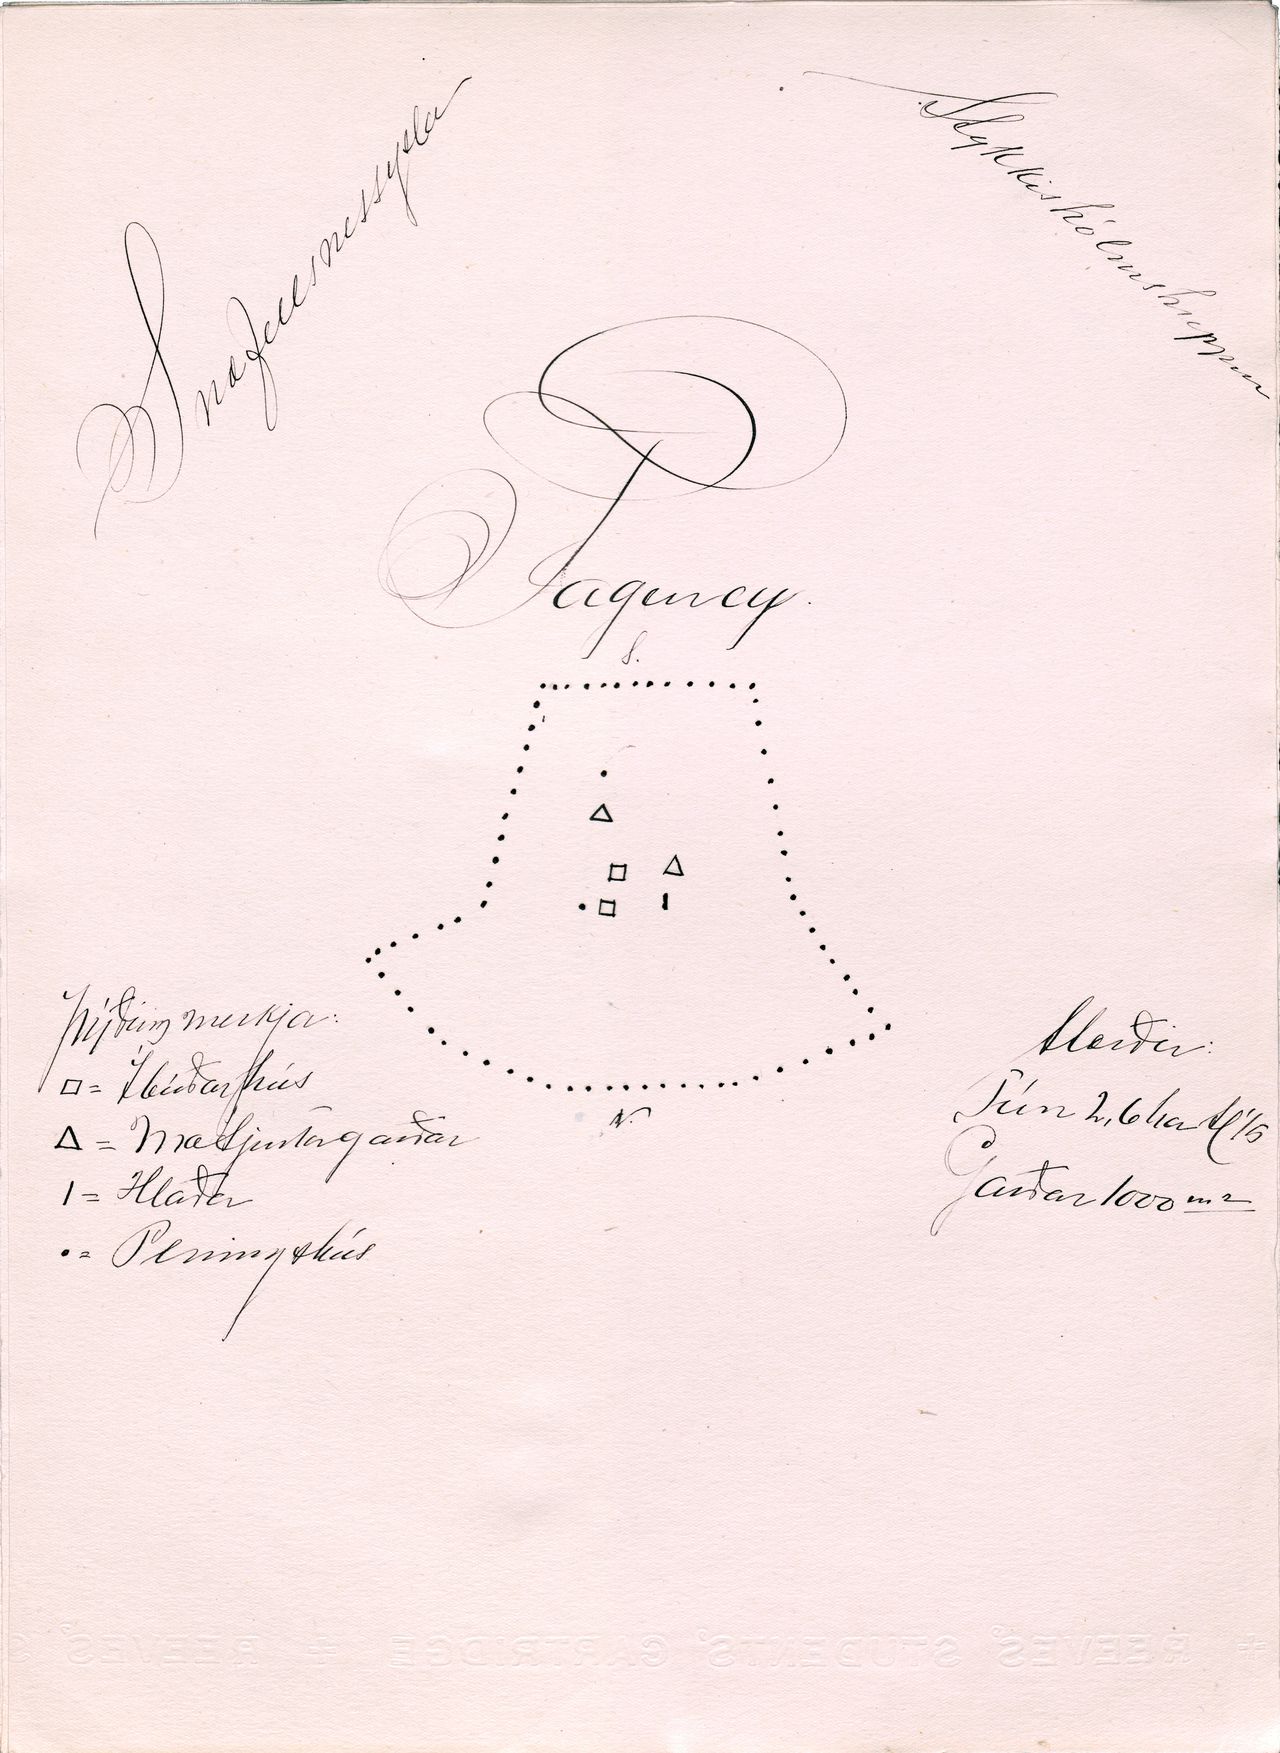 Snæfellsnessýsla
Stykkishólmshreppur
Fagurey.
S.
N.
Þýðing merkja:
□ = Íbúðarhús
Δ = Matjurtagarðar
I = Hlaða
• = Peningshús
Stærðir:
Tún 2,6 ha
Garðar 1000 m²
REEVES' STUDENTS' CARTRIDGE + REEVES' S